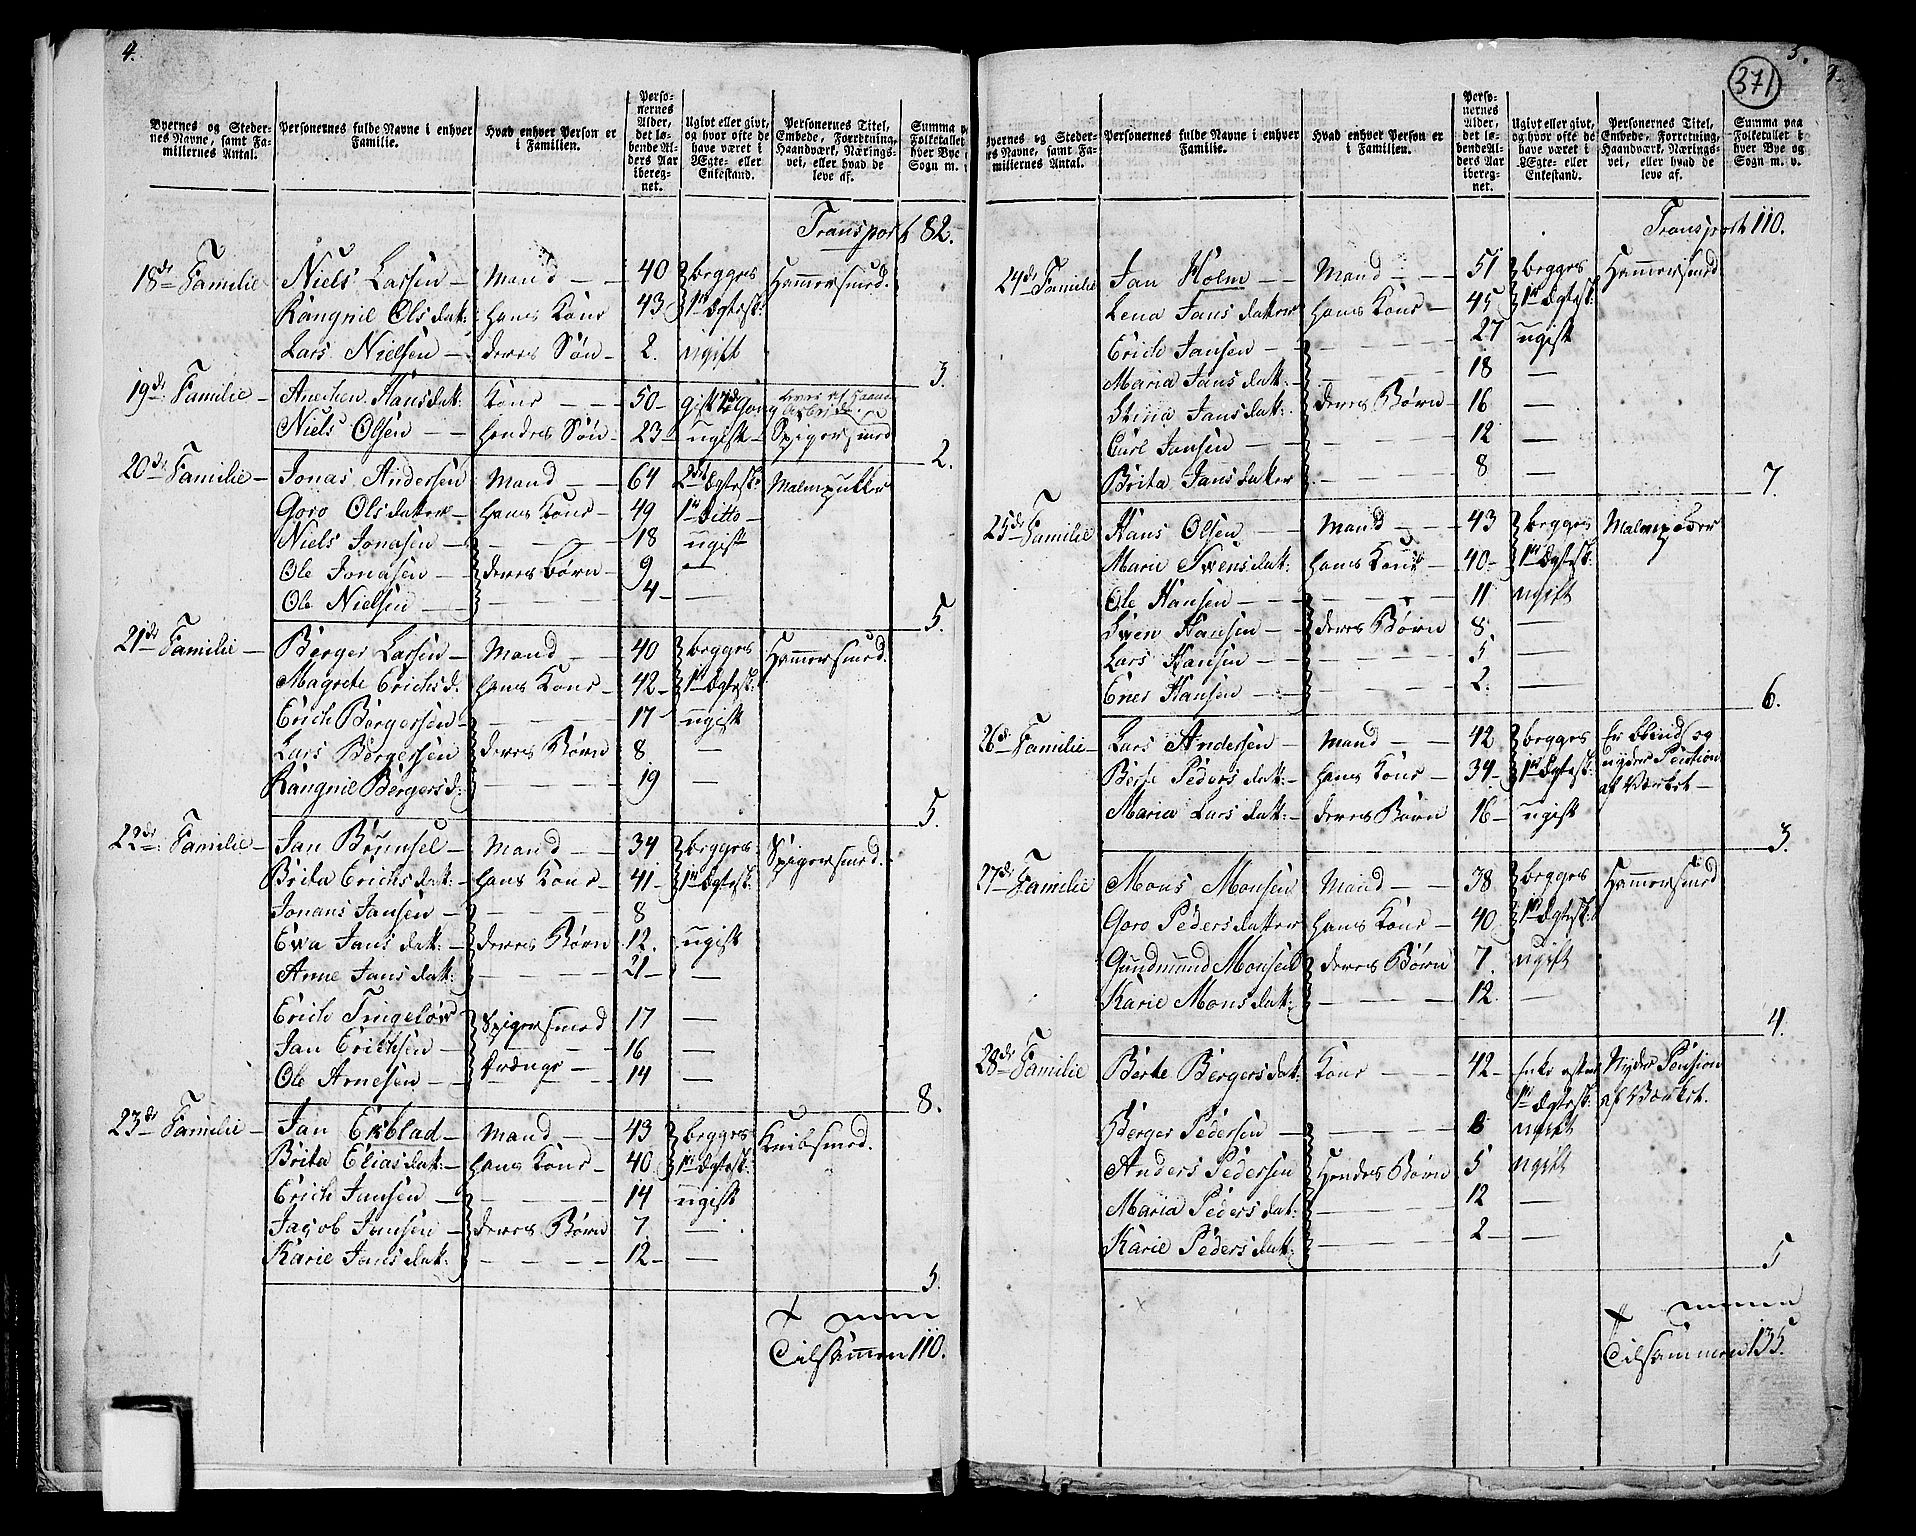 4.
Byernes og Steder-
nes Navne, samt Fa-
miliernes Antal.
Personernes fulde Navne i enhver
Familie.
Hvad enhver Person er
i Familien.
Perso-
nernes
Alder,
det lø-
bende Al-
ders Aar
iberegn-
net.
Ugivt eller givt,
og hvor ofte de
have været i
Ægte- eller
Enkestand.
Personernes Titel,
Embede, Forretning,
Haandværk, Nærings-
vei, eller hvad de
leve af.
Summa
Folketallet
hver Bye
Sogn m.
Transport 82.
18de Familie Niels Larsen Mand 40 begges Hammersmed.
Rangniel Olsdat: hans Kone 43 1te Ægtesk:
Lars Nielsen deres Søn 2. ugift
3.
19de Familie Anechen Hansdat: Kone 50 gift 2de Gang Lever af Haand Arbeide
Niels Olsen hendes Søn 23 ugift Spigersmed
2.
20de Familie Jonas Andersen Mand 64 2det Ægtesk: Malmpukker
Goro Olsdatter hans Kone 49 1te ditto
Niels Jonasen 18 ugift
Ole Jonasen deres børn 9 —
Ole Nielsen 4 —
5.
21de Familie Børger Larsen Mand 40 begges Hammersmed.
Magrete Erichsd. hans Kone 42 1te Ægtesk:
Erich Børgersen 17 ugift
Lars Børgersen deres Børn 8 —
Rangniel Børgersd: 19 —
5.
22de Familie Jan Brunsel Mand 34 begges Spigersmed.
Brita Erichsdat: hans Kone 41 1te Ægtesk:
Jonans Jansen 8
Ewa Jansdat: deres Børn 12. ugift
Anne Jansdat: 21 —
Erich Tingelöv Spigersmed 17 —
Jan Erichsen Drænge 16 —
Ole Arnesen 14 —
8.
23de Familie Jan Ekblad Mand 43 begges Knibsmed.
Brita Eliasdat: hans Kone 40 1te Ægtesk:
Erich Jansen 14 ugift
Jacob Jansen deres Børn 7. —
Karie Jansdat: 12 —
5.
Tilsammen 110.
371
5.
Byernes og Steder-
nes Navne, samt Fa-
miliernes Antal.
Personernes fulde Navne i enhver
Familie.
Hvad enhver Person er
i Familien.
Perso-
nernes
Alder,
det lø-
bende Al-
ders Aar
iberegn-
net.
Ugivt eller givt,
og hvor ofte de
have været i
Ægte- eller
Enkestand.
Personernes Titel,
Embede, Forretning,
Haandværk, Nærings-
vei, eller hvad de
leve af.
Summa paa
Folketallet i
hver Bye og
Sogn m. v.
Transport 110.
24de Familie Jan Holm Mand 51 begges Hammersmed
Lena Jansdatter hans Kone 45 1te Ægtesk:
Erich Jansen 27 ugift
Maria Jansdat: 18 —
Stina Jansdat: deres Børn 16 —
Carl Jansen 12 —
Brita Jansdatter 8 —
7.
25de Familie Hans Olsen Mand 43 begges
Marie Swensdat: hans Kone 40 1te Ægtesk:
Ole Hansen 11 ugift
Swen Hansen deres Børn 8 —
Lars Hansen 5 —
Enes Hansen 2. —
6.
26de Familie Lars Andersen Mand 42 begges Er blind og
Berte Pedersdat: hans Kone 34 1te Ægtesk: nyder Pention
Maria Larsdat: deres Børn 16 ugift af Værket
3.
27de Familie Mons Monsen Mand 38 begges Hammersmed
Goro Pedersdatter hans Kone 40 1te Ægtesk:
Gundmund Monsen deres Børn 7. ugift
Karie Monsdat: 12. —
4.
28de Familie Berte Bergersdat: Kone 42 Enke efter Nyder Pension
1te Ægtesk: af Værket.
Berger Pedersen 8 ugift
Anders Pedersen Hendes Børn 5 ugift
Maria Pedersdat: 12 —
Karie Pedersdat: 2 —
5
Tilsammen 135.